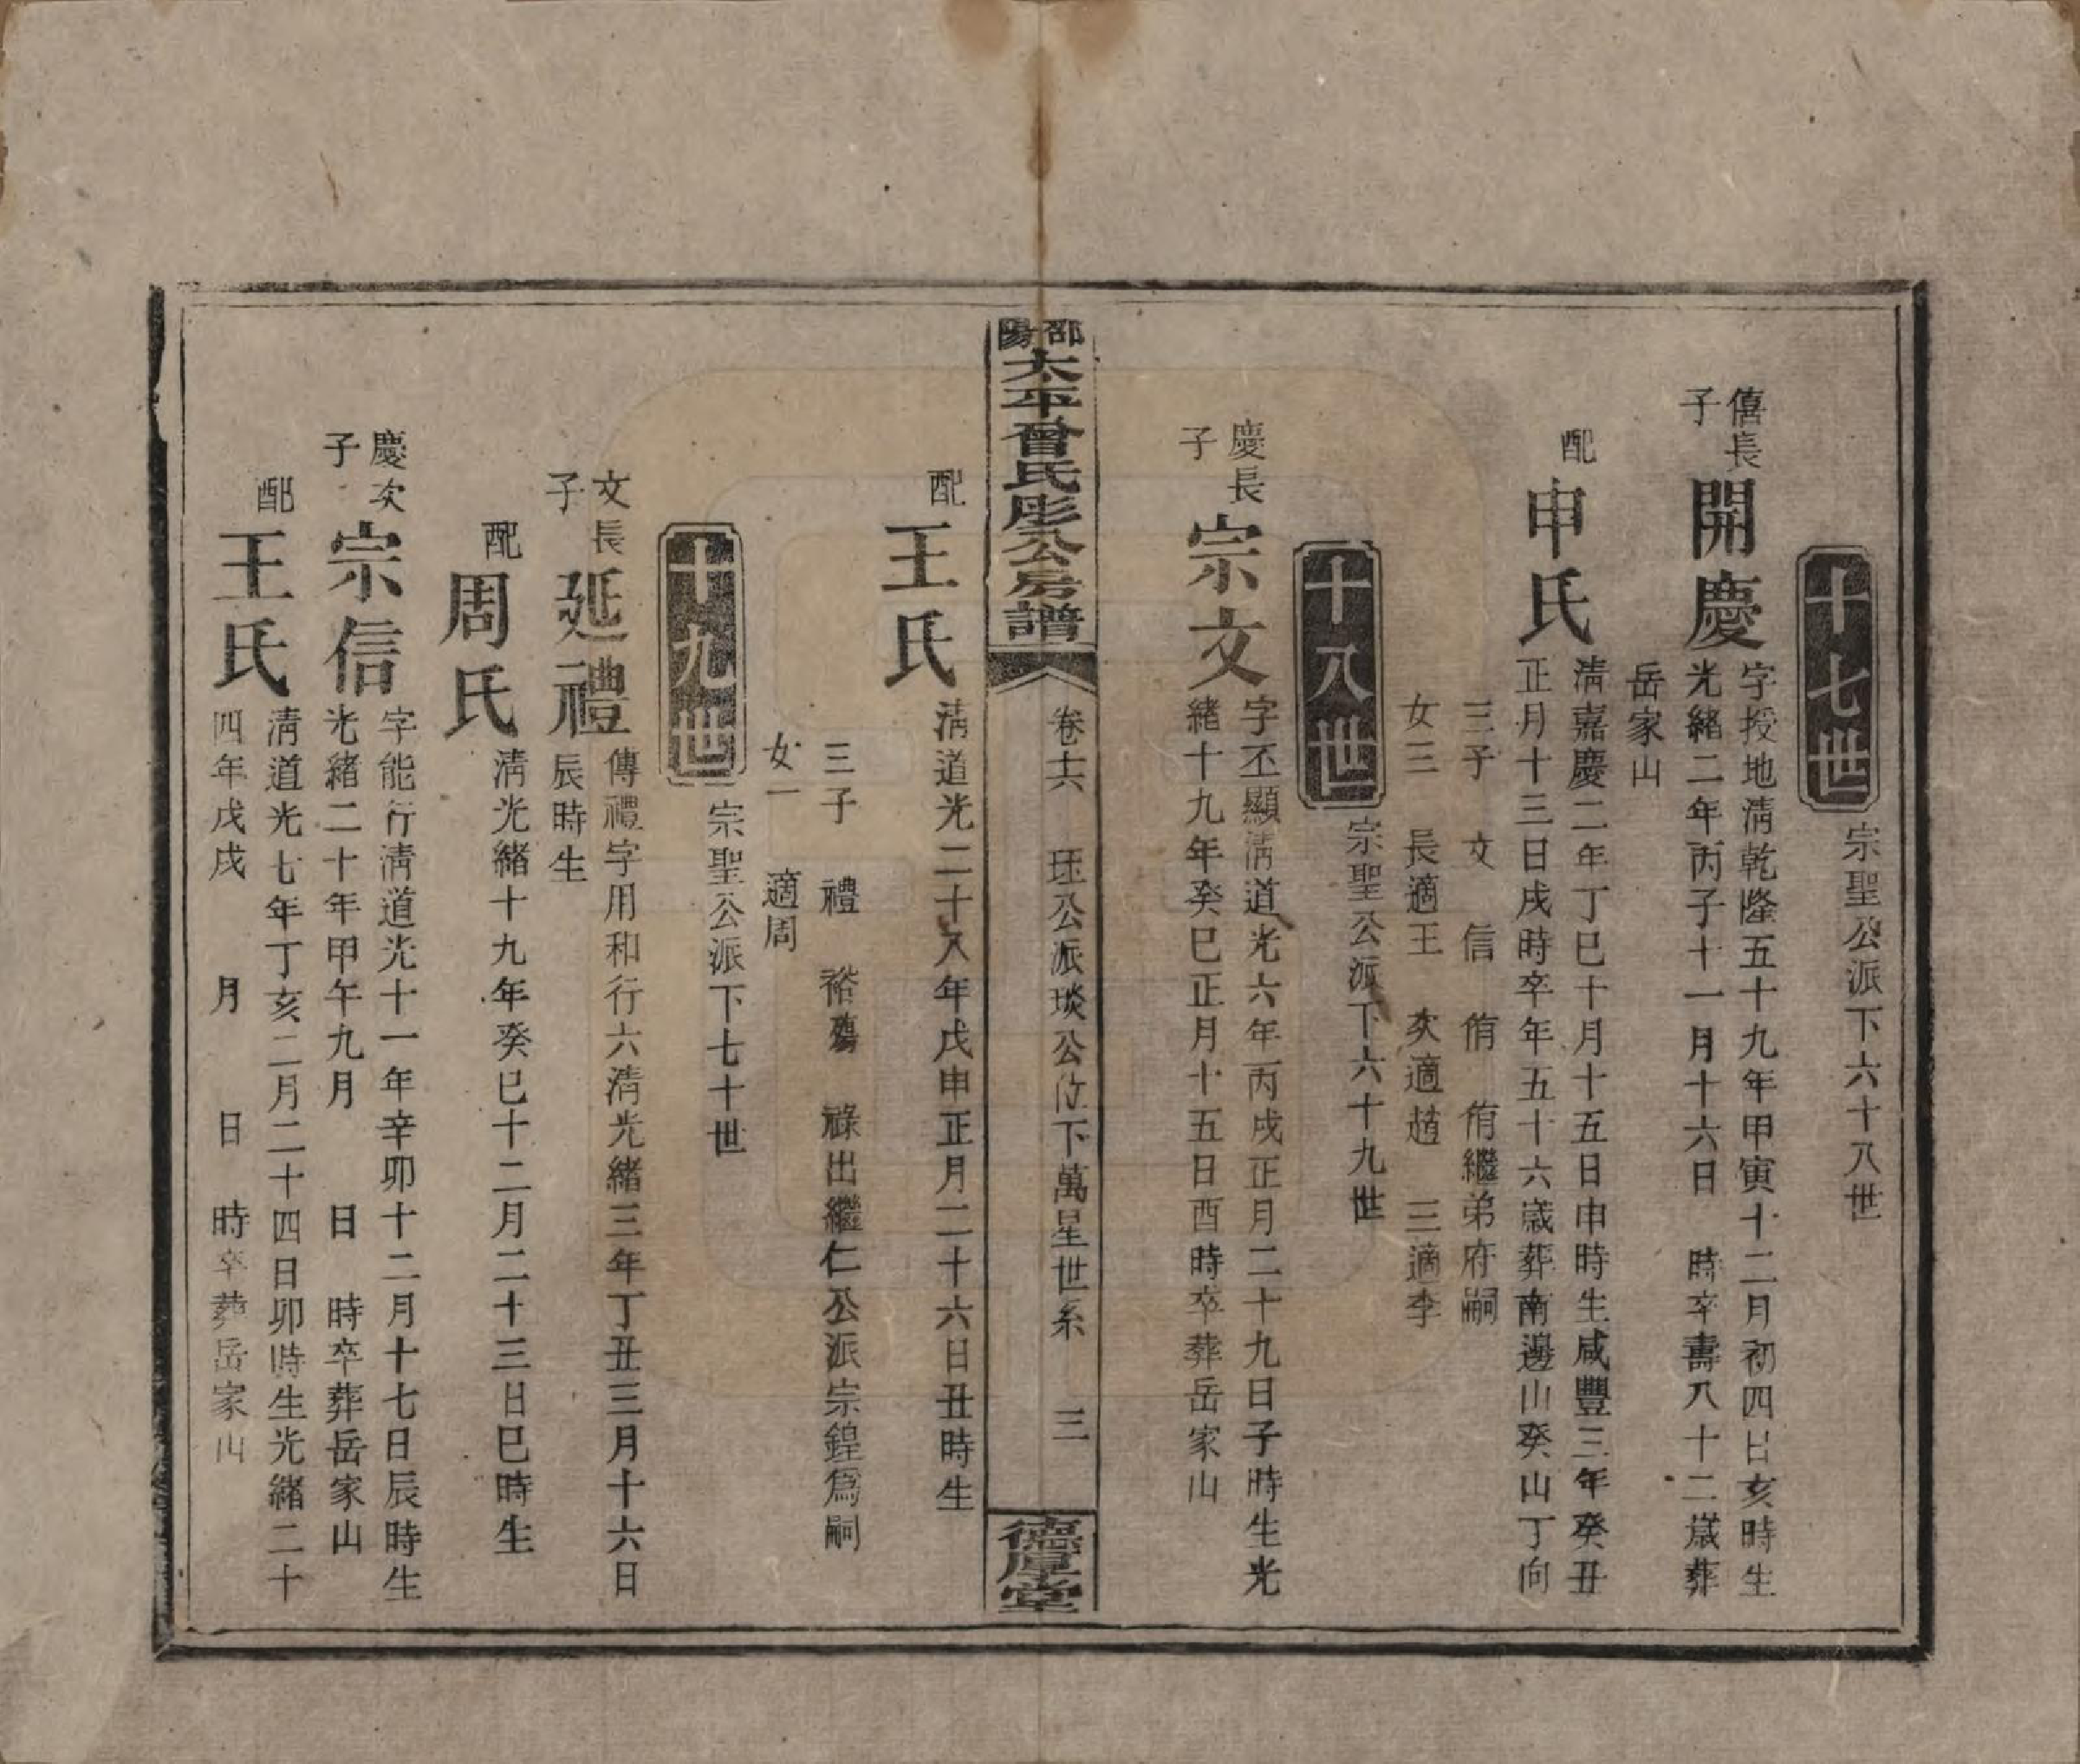 十七世
宗聖公派下六十八世
僖長
子
開慶
字授地清乾隆五十九年甲寅十二月初四日亥時生
光緒二年丙子十一月十六日 時卒壽八十二歲葬
岳家山
配
申氏
清嘉慶二年丁巳十月十五日申時生咸豐三年癸丑
正月十三日戌時卒年五十六歲葬南邊山癸山丁向
三子 文 信 侑 侑繼弟府嗣
女三 長適王 次適趙 三適李
十八世
宗聖公派下六十九世
慶長
子
宗文
字丕顯清道光六年丙戌正月二十九日子時生光
緒十九年癸巳正月十五日酉時卒葬岳家山
邵陽
太平曾氏彤公房譜
卷十六 珏公派琰公位下萬星世系 三
德厚堂
配
王氏
清道光二十八年戊申正月二十六日丑時生
三子 禮 裕殤 祿出繼仁公派宗鍠爲嗣
女一 適周
十九世
宗聖公派下七十世
文長
子
延禮
傳禮字用和行六清光緒三年丁丑三月十六日
辰時生
配
周氏
清光緒十九年癸巳十二月二十三日巳時生
慶次
子
宗信
字能行清道光十一年辛卯十二月十七日辰時生
光緒二十年甲午九月 日 時卒葬岳家山
配
王氏
清道光七年丁亥二月二十四日卯時生光緒二十
四年戊戌 月 日 時卒葬岳家山